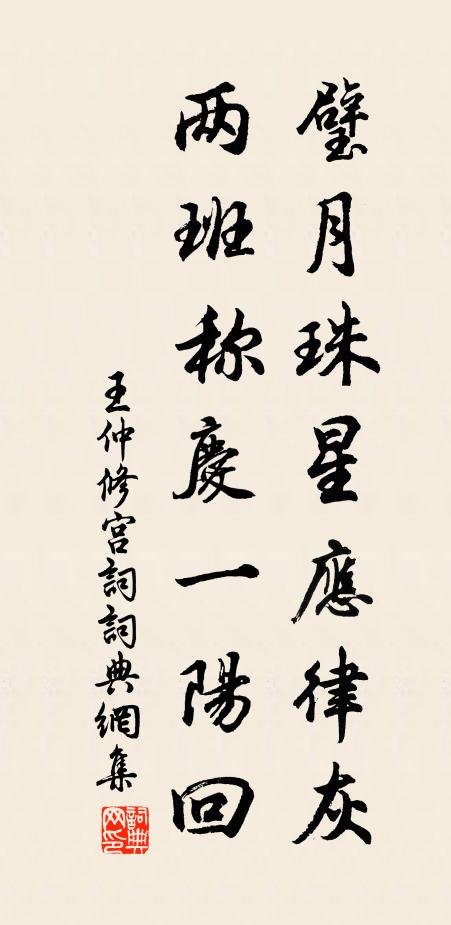 璧月珠星應律灰
两班称慶一陽回
王仲修宫詞詞典網集
詞典网印